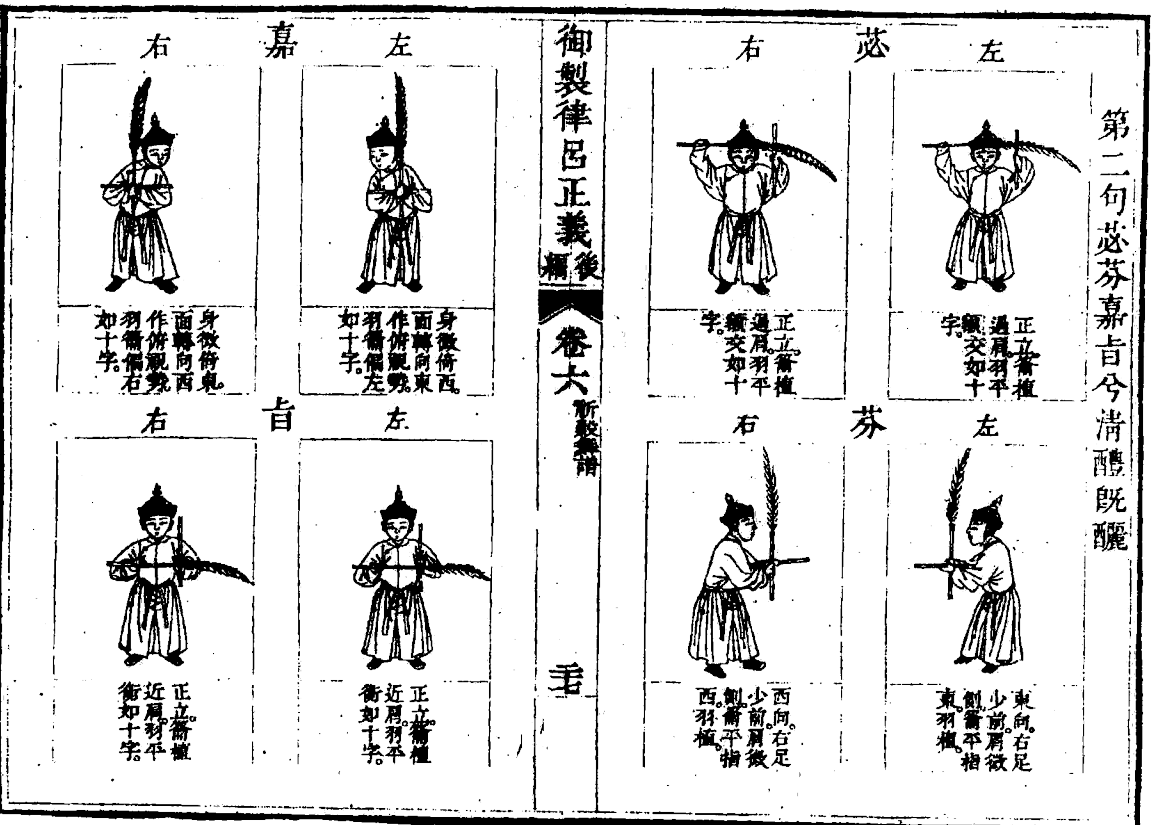 第二句苾芬嘉旨兮清醴既釃
苾
左
正立籥植
過肩羽平
額交如十
字
右
正立籥植
過肩羽平
額交如十
字
芬
左
東向右足
少前肩微
側籥平指
東羽植
右
西向右足
少前肩微
側籥平指
西羽植
御製律呂正義
後編
卷六
祈穀舞譜
嘉
左
身微倚西
面轉向東
作俯視勢
羽籥偏左
如十字
右
身微倚東
面轉向西
作俯視勢
羽籥偏右
如十字
旨
左
正立籥植
近肩羽平
衡如十字
右
正立籥植
近肩羽平
衡如十字